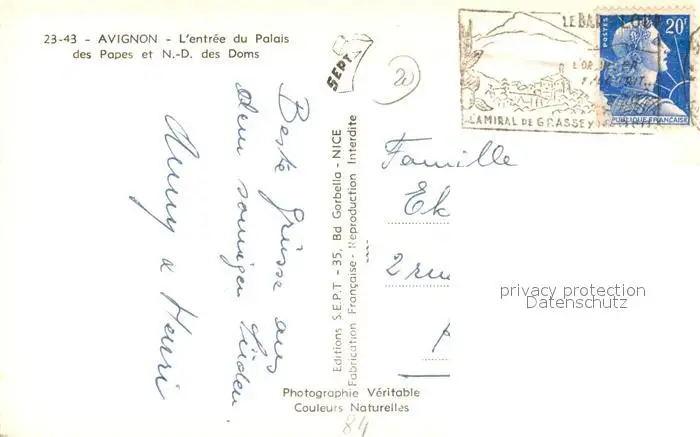 23-43 - AVIGNON - L'entrée du Palais
des Papes et N.-D. des Doms
SEPT
20
LE BAR
L'AMIRAL DE GRASSE
POSTES
20F
REPUBLIQUE FRANÇAISE
Beste Grüsse aus
dem sonnigen Süden
& Henri
Editions S.E.P.T - 35, Bd Gorbella - NICE
Fabrication Française - Reproduction Interdite
Famille
Ek
2 rue
privacy protection
Datenschutz
Photographie Véritable
Couleurs Naturelles
84